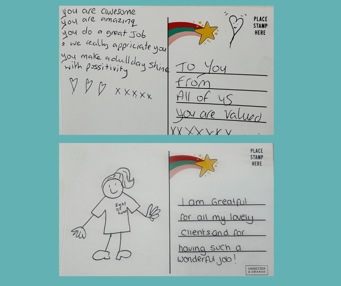 you are awesome
you are amazing
you do a great Job
& we really appriciate you
you make a dull day shine
with possitivity
x x x x x
PLACE
STAMP
HERE
To You
from
All of us
you are valued
xx xxxxx
PLACE
STAMP
HERE
I am Greatful
for all my lovely
clients and for
having such a
wonderful job!